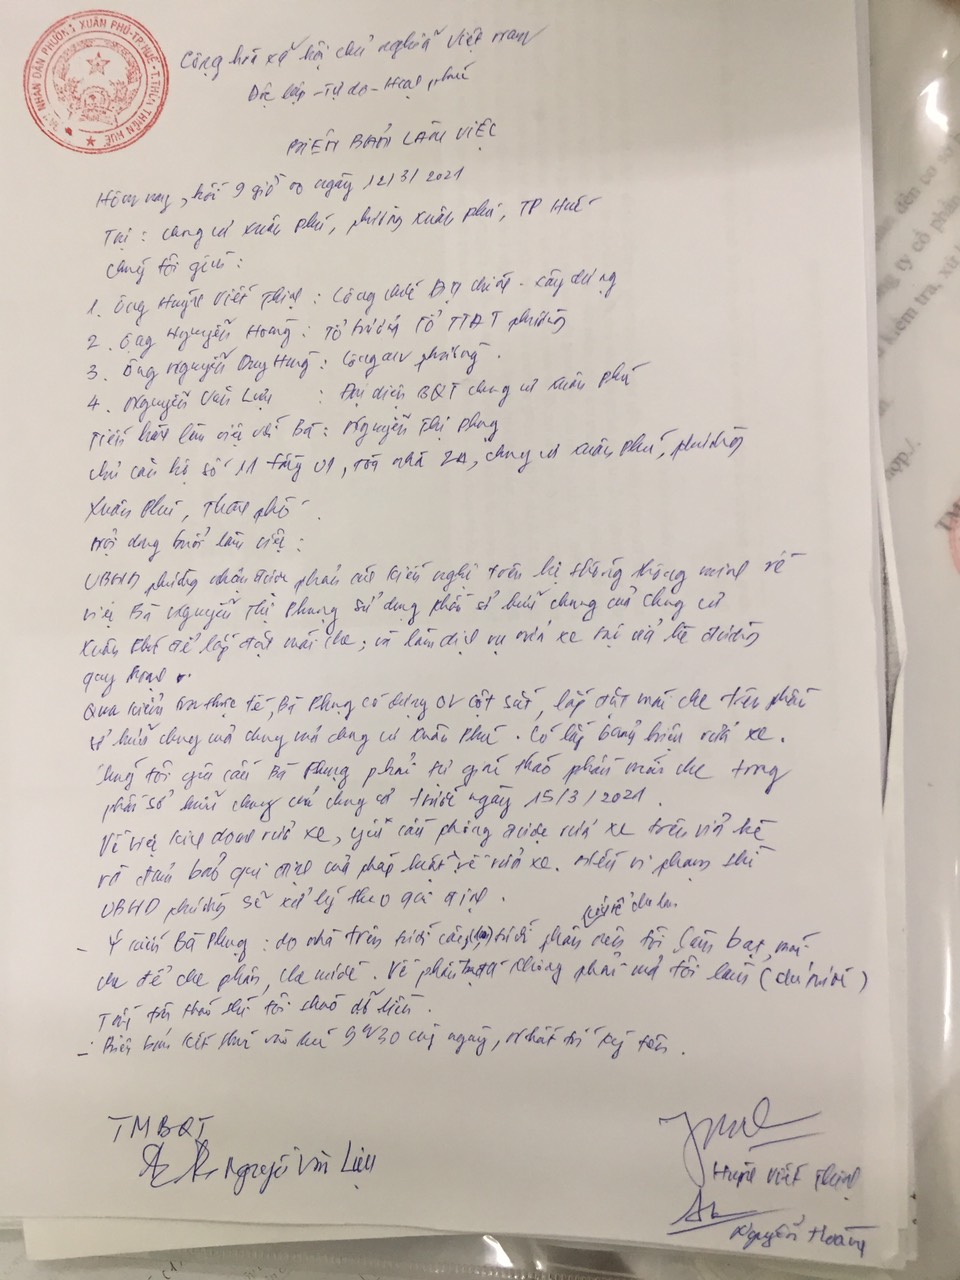 NHÂN DÂN PHƯỜNG XUÂN PHÚ-TP.HUẾ-T.THỪA THIÊN HUẾ
Cộng hòa xã hội chủ nghĩa Việt Nam
Độc lập - Tự do - Hạnh phúc
BIÊN BẢN LÀM VIỆC
Hôm nay, hồi 9 giờ 00 ngày 12/3/2021
Tại: chung cư Xuân Phú, phường Xuân Phú, TP Huế
Chúng tôi gồm:
1. Ông Huỳnh Viết Thịnh: Công chức Địa chính - xây dựng
2. Ông Nguyễn Hoàng: Tổ trưởng Tổ TTĐT phường
3. Ông Nguyễn Duy Hưng: Công an phường.
4. Nguyễn Văn Liệu: Đại diện BQT chung cư Xuân Phú
Tiến hành làm việc với Bà: Nguyễn Thị Phụng
chủ căn hộ số 11 tầng 01, tòa nhà 2A, chung cư Xuân Phú, phường
Xuân Phú, Thành phố.
Nội dung buổi làm việc:
UBND phường nhận được phản ánh kiến nghị trên hệ thống thông minh về
việc Bà Nguyễn Thị Phụng sử dụng phần sở hữu chung của chung cư
Xuân Phú để lắp đặt mái che; và làm dịch vụ rửa xe tại vỉa hè đường
quy hoạch.
Qua kiểm tra thực tế, Bà Phụng có dựng 01 cột sắt, lắp đặt mái che trên phần
sở hữu chung của chung cư Xuân Phú. Có lắp bảng hiệu rửa xe.
Chúng tôi yêu cầu Bà Phụng phải tự giác tháo phần mái che trong
phần sở hữu chung của chung cư trước ngày 15/3/2021.
Về việc kinh doanh rửa xe, yêu cầu không được rửa xe trên vỉa hè
và đảm bảo qui định của pháp luật về rửa xe. Nếu vi phạm thì
UBND phường sẽ xử lý theo qui định.
- Ý kiến Bà Phụng: do nhà trên tưới cây, tưới phân nên tôi làm bạt, mái
che để che phân, che nước. Về phần không phải mà tôi làm (chủ trước)
tháo thì tôi tháo dỡ liền.
- Biên bản kết thúc vào lúc 9h30 cùng ngày, nhất trí ký tên.
TM BQT
Nguyễn Văn Liệu
Huỳnh Viết Thịnh
Nguyễn Hoàng